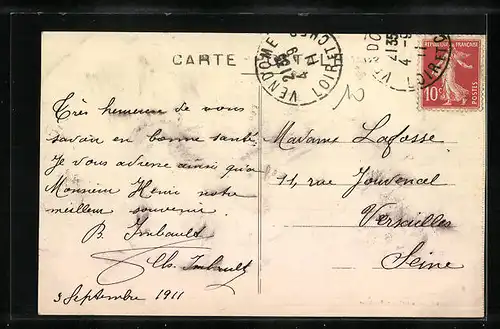 CARTE
VENDOME
21 35
4 - 9
11
LOIR ET CHER
21 35
4 - 9
11
LOIR ET C
REPUBLIQUE FRANCAISE
10c
POSTES
10
Très heureuse de vous
savoir en bonne santé
Je vous adresse ainsi qu'à
Monsieur Henri notre
meilleur souvenir.
B. Imbault
Ch. Imbault
3 Septembre 1911
Madame Lafosse
11, rue Jouvencel
Versailles
Seine